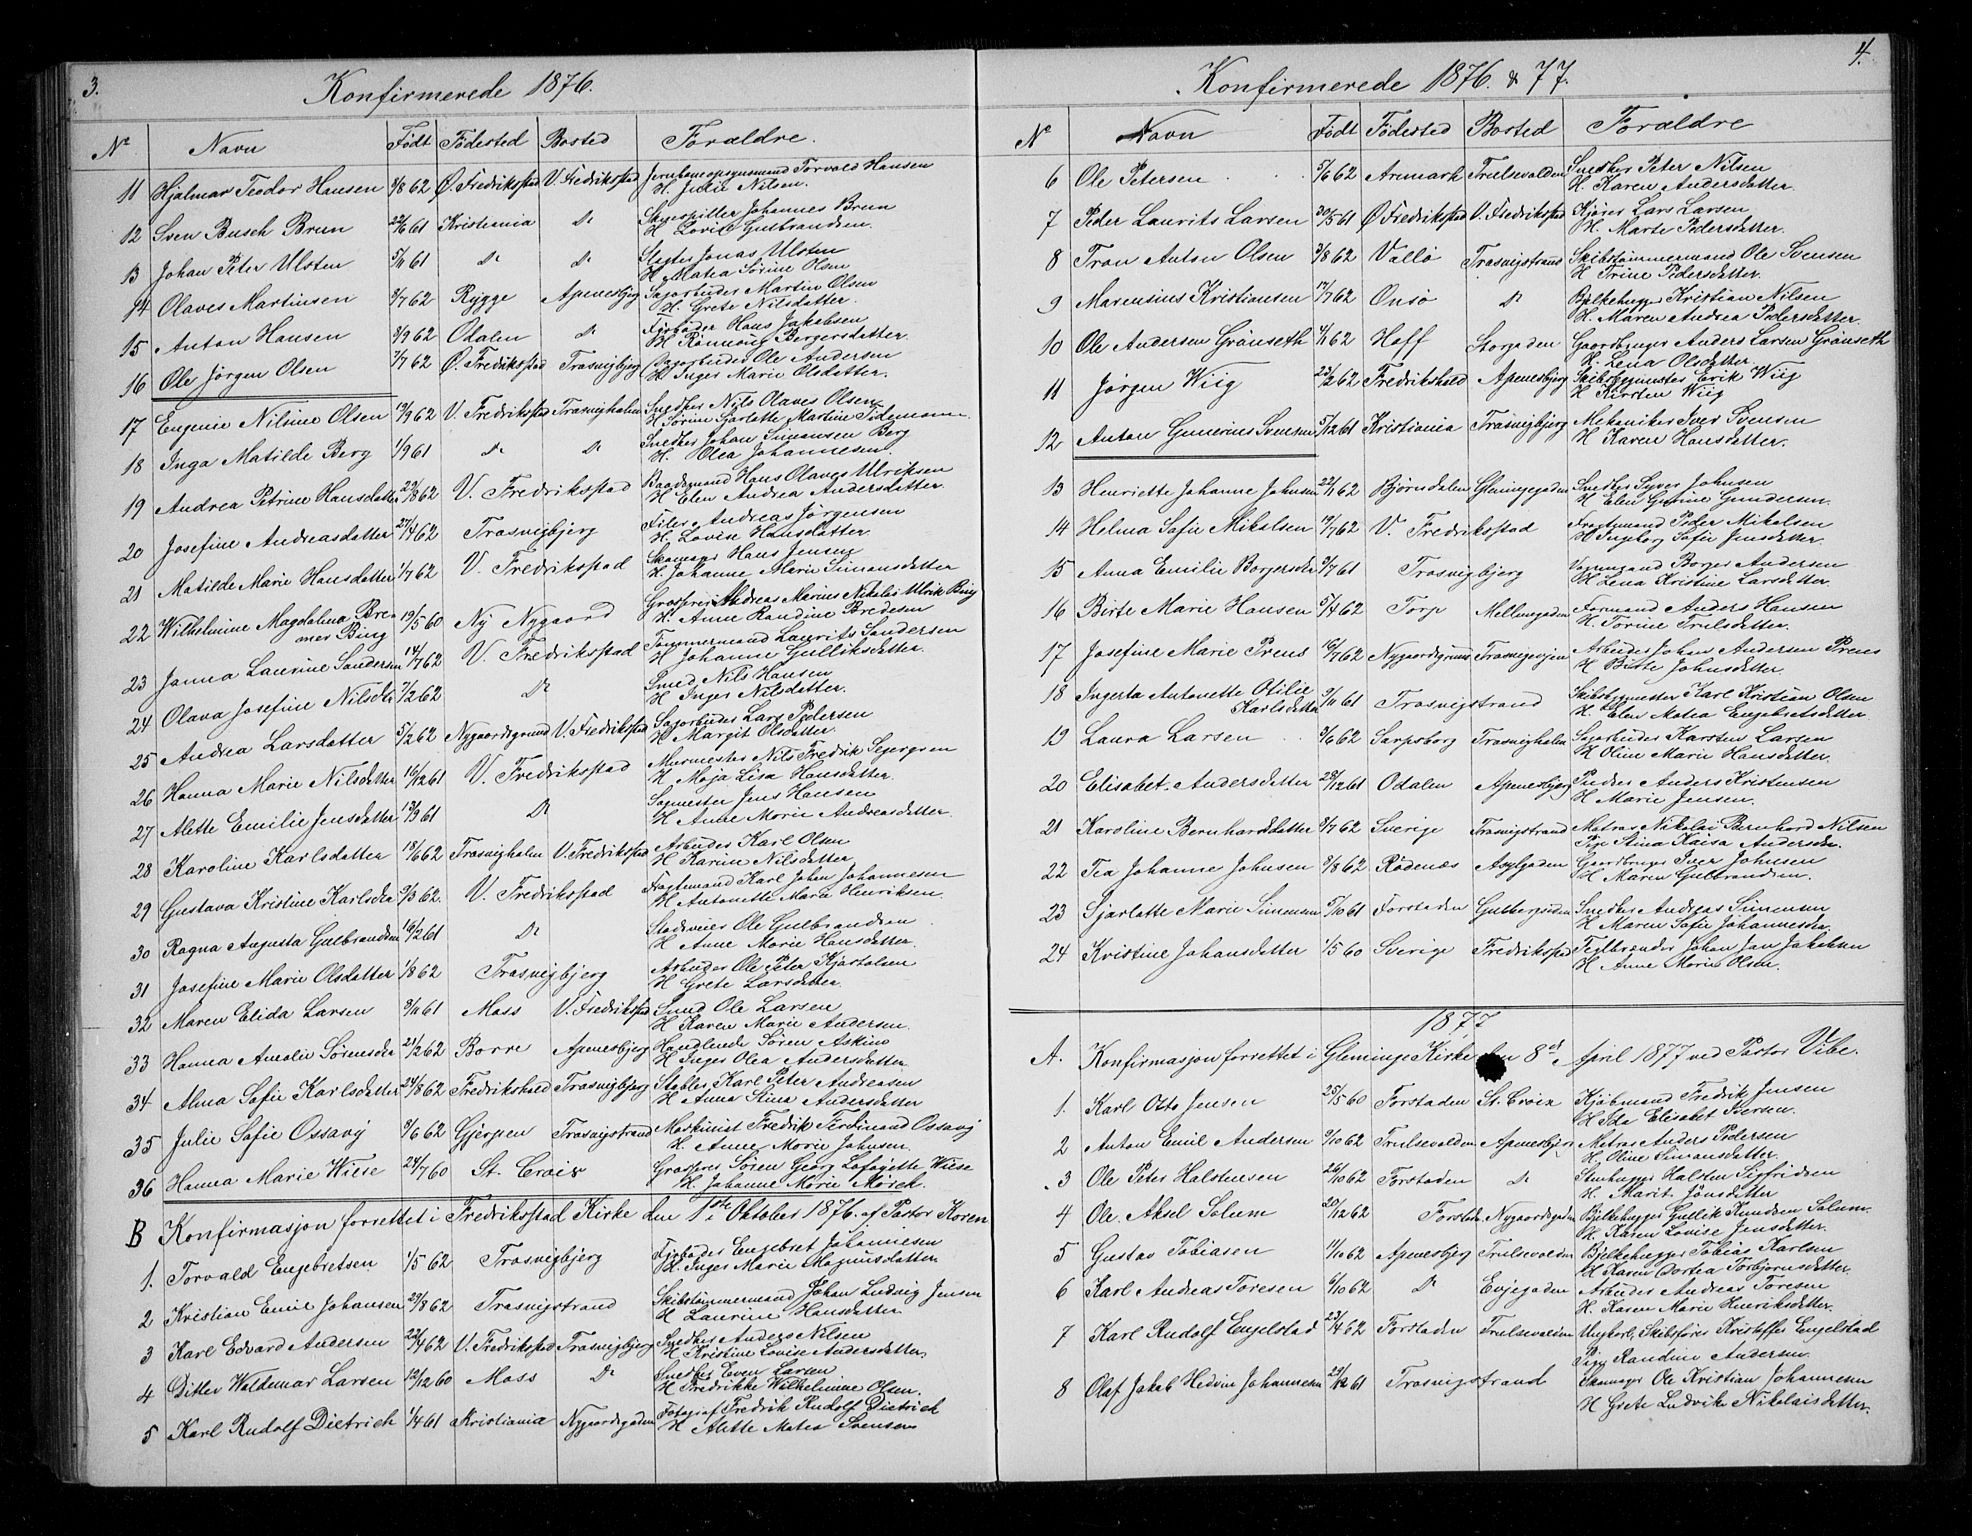 3.
Konfirmerede 1876.
Nº Navn Födt Födested Bosted Foræeldre.
11 Hjalmar Teodor Hansen 8 62 Ø. Fredrikstad V. Fredrikstad Torvald Hansen
H. Julie Nilsen.
12 Sven Busch Brun 22/6 61 Kristiania do Skuespiller Johannes Brun
H. Lovise Gulbrandsen.
13 Johan Peter Ulsten 5/11 61 do do Jonas Ulsten
H. Matea Sörine Olsen
14 Olaves Martinsen 7 62 Rygge Apenesbjerg Sagarbeider Martin Olsen
H. Grete Nilsdatter.
15 Anton Hansen 9 62 Odalen do Fyrböder Hans Jakobsen
H. Bergersdatter.
16 Ole Jörgen Olsen 7 62 Ø. Fredrikstad Trosvigbjerg Sagarbeider Ole Andersen
H. Inger Marie Olsdatter.
17 Eugenie Nilsine Olsen 9 62 V. Fredrikstad Trosvigholen Snedker Nils Olaves Olsen
H. Sörine Sjarlotte Martine Tidemann
18 Inga Matilde Berg 1/9 61 do do Snedker Johan Simonsen Berg
H. Olea Johannesen.
19 Andrea Petrine Hansdatter 29/8 62 V. Fredrikstad Baadsmand Hans Olaves Ulriksen
H. Elen Andrea Andersdatter.
20 Josefine Andreasdatter 27/4 62 Trosvigbjerg Filer Andreas Jörgensen
H. Lovise Hansdatter
21 Matilde Marie Hansdatter 1/7 62 V. Fredrikstad Skomager Hans Jensen
H. Johanne Marie Simonsdatter
22 Wilhelmine Magdalena Bre- 19/5 60 Ny Nygaard Andreas Marius Nikolai Ulrik Bing
mer Bing H. Anne Randine Bredesen
23 Janna Laurine Sandersen 14/7 62 V. Fredrikstad Tömmermand Laurits Sandersen
H. Johanne Gulliksdatter.
24 Olava Josefine Nilsdtr 7/2 62 do Smed Nils Hansen
H. Inger Nilsdatter.
25 Andrea Larsdatter 5/2 62 Nygaardsgrund V. Fredrikstad Sagarbeider Lars Pedersen
H. Margit Olsdatter.
26 Hanna Marie Nilsdatter 16/12 61 V. Fredrikstad Murmester Nils Fredrik
H. Maja Lisa Hansdatter.
27 Alette Emilie Jensdatter 13/9 61 do Sagmester Jens Hansen
H. Anne Marie Andreasdatter.
28 Karoline Karlsdatter 18/6 62 Trosvigholen V. Fredrikstad Arbeider Karl Olsen
H. Karine Nilsdatter
29 Gustava Kristine Karlsdtr 3 62. V. Fredrikstad Fragtemand Karl Johan Johannesen
H. Antonette Marie Henriksen.
30 Ragna Augusta Gulbrandsen 16/2 61 do Ole Gulbrandsen
H. Anne Marie Hansdatter.
31 Josefine Marie Olsdatter 1/8 62 Trosvigbjerg Arbeider Ole Peter
H. Grete Larsdatter.
32 Maren Elida Larsen 11 61 Moss V. Fredrikstad Smed Ole Larsen
H. Karen Marie Andersen.
33 Hanna Amalie Sörensdtr 21/2 62 Borre Apenesbjerg Handlende Sören Askino
H. Inger Olea Andersdatter
34 Alma Sofie Karlsdatter 24/8 62 Fredrikshald Trosvigbjerg Stabler Karl Peter Andreasen
H. Anna Stina Andersdatter
35 Julie Sofie Ossavy 6 62 Gjerpen Trosvigstrand Maskinist Fredrik Ferdinand Ossavy
H. Anne Marie Johnsen.
36 Hanna Marie Wiese 24/7 60 St. Croix Sören Georg Lafayette Wiese
H. Johanne Marie Mörch.
B Konfirmasjon forrettet i Fredrikstad Kirke den 1ste Oktober 1876 af Pastor Koren
1. Torvald Engebretsen 1/5 62 Trosvigbjerg Fyrböder Engebret Johannesen
H. Inger Marie Magnusdatter
2 Kristian Emil Johansen 29/8 62 Trosvigstrand Skibstömmermand Johan Ludvig Jensen
H. Laurine Hansdatter
3 Karl Edvard Andersen 22/4 62 V. Fredrikstad Trosvigbjerg Snedker Anders Nilsen
H. Kristine Lovise Andersdatter.
4 Ditlev Waldemar Larsen 12/12 60 Moss do Snedker Even Larsen
H. Fredrikke Wilhelmine Olsen.
5 Karl Rudolf Dietrich 1/4 61 Kristiania Nygaardsgaden Fotograf Fredrik Rudolf Dietrich
H. Alette Matea Svensen
4.
Konfirmerede 1876. & 77.
Nº Navn Födt Födested Bosted Forældre
6 Ole Petersen 5/6 62 Aremark Trulsevalden Snedker Peter Nilsen
H. Karen Andersdatter.
7 Peder Laurits Larsen 30/5 61 Ø Fredrikstad V. Fredrikstad Kjörer Lars Larsen
H. Marte Pedersdatter.
8 Tron Anton Olsen 8 62 Vallö Trosvigstrand Skibstömmermand Ole Svensen
H. Trine Pedersdatter.
9 Marensius Kristiansen 17/7 62 Onsö do Bjelkehugger Kristian Nilsen
H. Maren Andrea Pedersdatter.
10 Ole Andersen Grönseth 62 Hoff Storgaden Gaardbruger Anders Larsen Grönseth
H. Lena Olsdatter.
11 Jörgen Wiig 23/2 62 Fredrikshald Apenesbjerg Skibsbygmester Erik Wiig
H. Kirsten Wiig
12 Anton Gunerius Svensen 5/12 61 Kristiania Trosvigbjerg Mekaniker Iver Svensen
H. Karen Hansdatter.
13 Henriette Johanne Johnsen 22/1 62 Björndalen Glemmegaden Snedker Syver Johnsen
H. Elen Gurine Gundersen.
14 Helma Sofie Mikalsen 19/7 62 V. Fredrikstad Fragtmand Peder Mikalsen
H. Ingeborg Sofie Jensdatter.
15 Anna Emilie Borgersdtr 7 61 Trosvigbjerg Vognmand Borger Andersen
H. Lena Kristine Larsdatter.
16 Birte Marie Hansen 5/4 62 Torp Mellemgaden Formand Anders Hansen
H. Torine Trulsdatter.
17 Josefine Marie Prens 16/7 62 Nygaardsgrund Trosvigveien Arbeider Johan Andersen Prens
H. Birtte Johnsdatter.
18 Ingerta Antonette Otilie 11 61 Trosvigstrand Skibsbygmester Karl Kristian Olsen
Karlsdatter H. Elen Matea Engebretsdatter
19 Laura Larsen 6 62 Sarpsborg Trosvigholen Sagarbeider Karsten Larsen
H. Oline Marie Hansdatter.
20 Elisabet Andersdatter 28/12 61 Odalen Apenesbjerg Anders Kristensen
H. Marie Jensen.
21 Karoline Bernhardsdatter 7 62 Sverige Trosvigstrand Matros Nikolai Bernhard Nilsen
Pige Stina Kaisa Andersdtr.
22 Tea Johanne Johnsen 8 62 Rödenæs Asylgaden Gaardbruger Iver Johnsen
H. Maren Gulbrandsen.
23 Sjarlotte Marie Simensen 7/10 61 Forstaden Snedker Andreas Simensen
H. Maren Sofie Johannesdtr.
24 Kristine Johansdatter 1/5 60 Sverige Fredrikstad Teglbrænder Johan Jan Jakobsen
H. Anne Marie Olsen.
1877
A. Konfirmasjon forrettet i Glemmje Kirke den 8de April 1877 ved Pastor Vibe.
1. Karl Otto Jensen 25/5 60 Forstaden St. Croix Kjöbmand Fredrik Jensen
H. Ida Elisabet Iversen.
2 Anton Emil Andersen 10 62 Trulsevalden Apenesbjerg Matros Anders Pedersen
H. Oline Simonsdatter.
3 Ole Peter Halstensen 26/10 62 Forstaden do Stenhugger Halsten Sigfridsen
H. Marit Jönsdatter
4 Ole Aksel Solum 20/12 62 Forstaden Nygaardsgaden Bjelkehugger Gullik Knudsen Solum.
H. Karen Lovise Jensdatter.
5 Gustav Tobiasen 10 62 Apenesbjerg Trulsevalden Bjelkehugger Tobias Karlsen
H. Karen Dortea Torbjörnsdatter
6 Karl Andreas Toresen 10 62 do Evjegaden Arbeider Andreas Toresen
H. Karen Marie Henriksdatter.
7 Karl Rudolf Engelstad 23/4 62 Forstaden Trulsevalden Ungkarl, Skibsförer Kristoffer Engelstad
Pige Randine Andersen.
8 Olaf Jakob Hedvin Johannesen 29/12 61 Trosvigstrand Skomager Ole Kristian Johannesen
H. Grete Ludvike Nikolaisdatter.